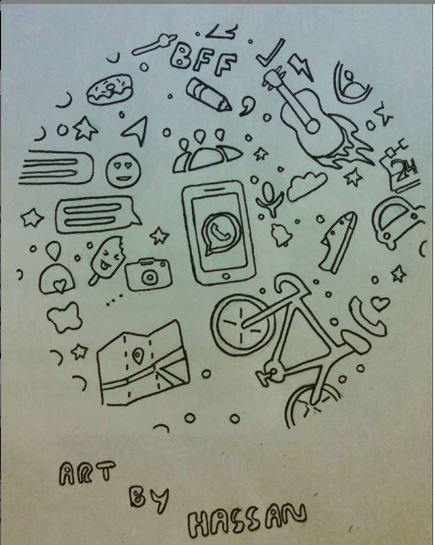 BFF
24
ART
BY
HASSAN